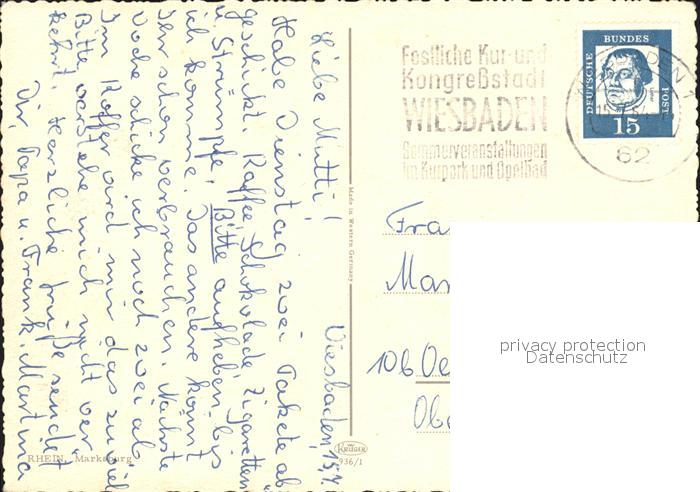 Wiesbaden, 15.7.
Liebe Mutti!
Habe Dienstag zwei Pakete ab
geschickt. Kaffee Schokolade Zigaretten
u. Strümpfe. Bitte aufheben bis
ich komme. Das andere könnt
Ihr schon verbrauchen. Nächste
Woche schicke ich noch zwei ab
Im Koffer wird mir das zu viel
Bitte verstehe mich nicht ver
kehrt. Herzliche Grüße sendet
Dir, Papa u. Frank. Martina
RHEIN, Marksburg
Made in Western Germany
KRÜGER
936/1
Festliche Kur- und
Kongreßstadt
WIESBADEN
Sommerveranstaltungen
im Kurpark und Opelbad
DEUTSCHE BUNDES POST
15
62
Fra
Mar
10b Oe
Obe
privacy protection
Datenschutz